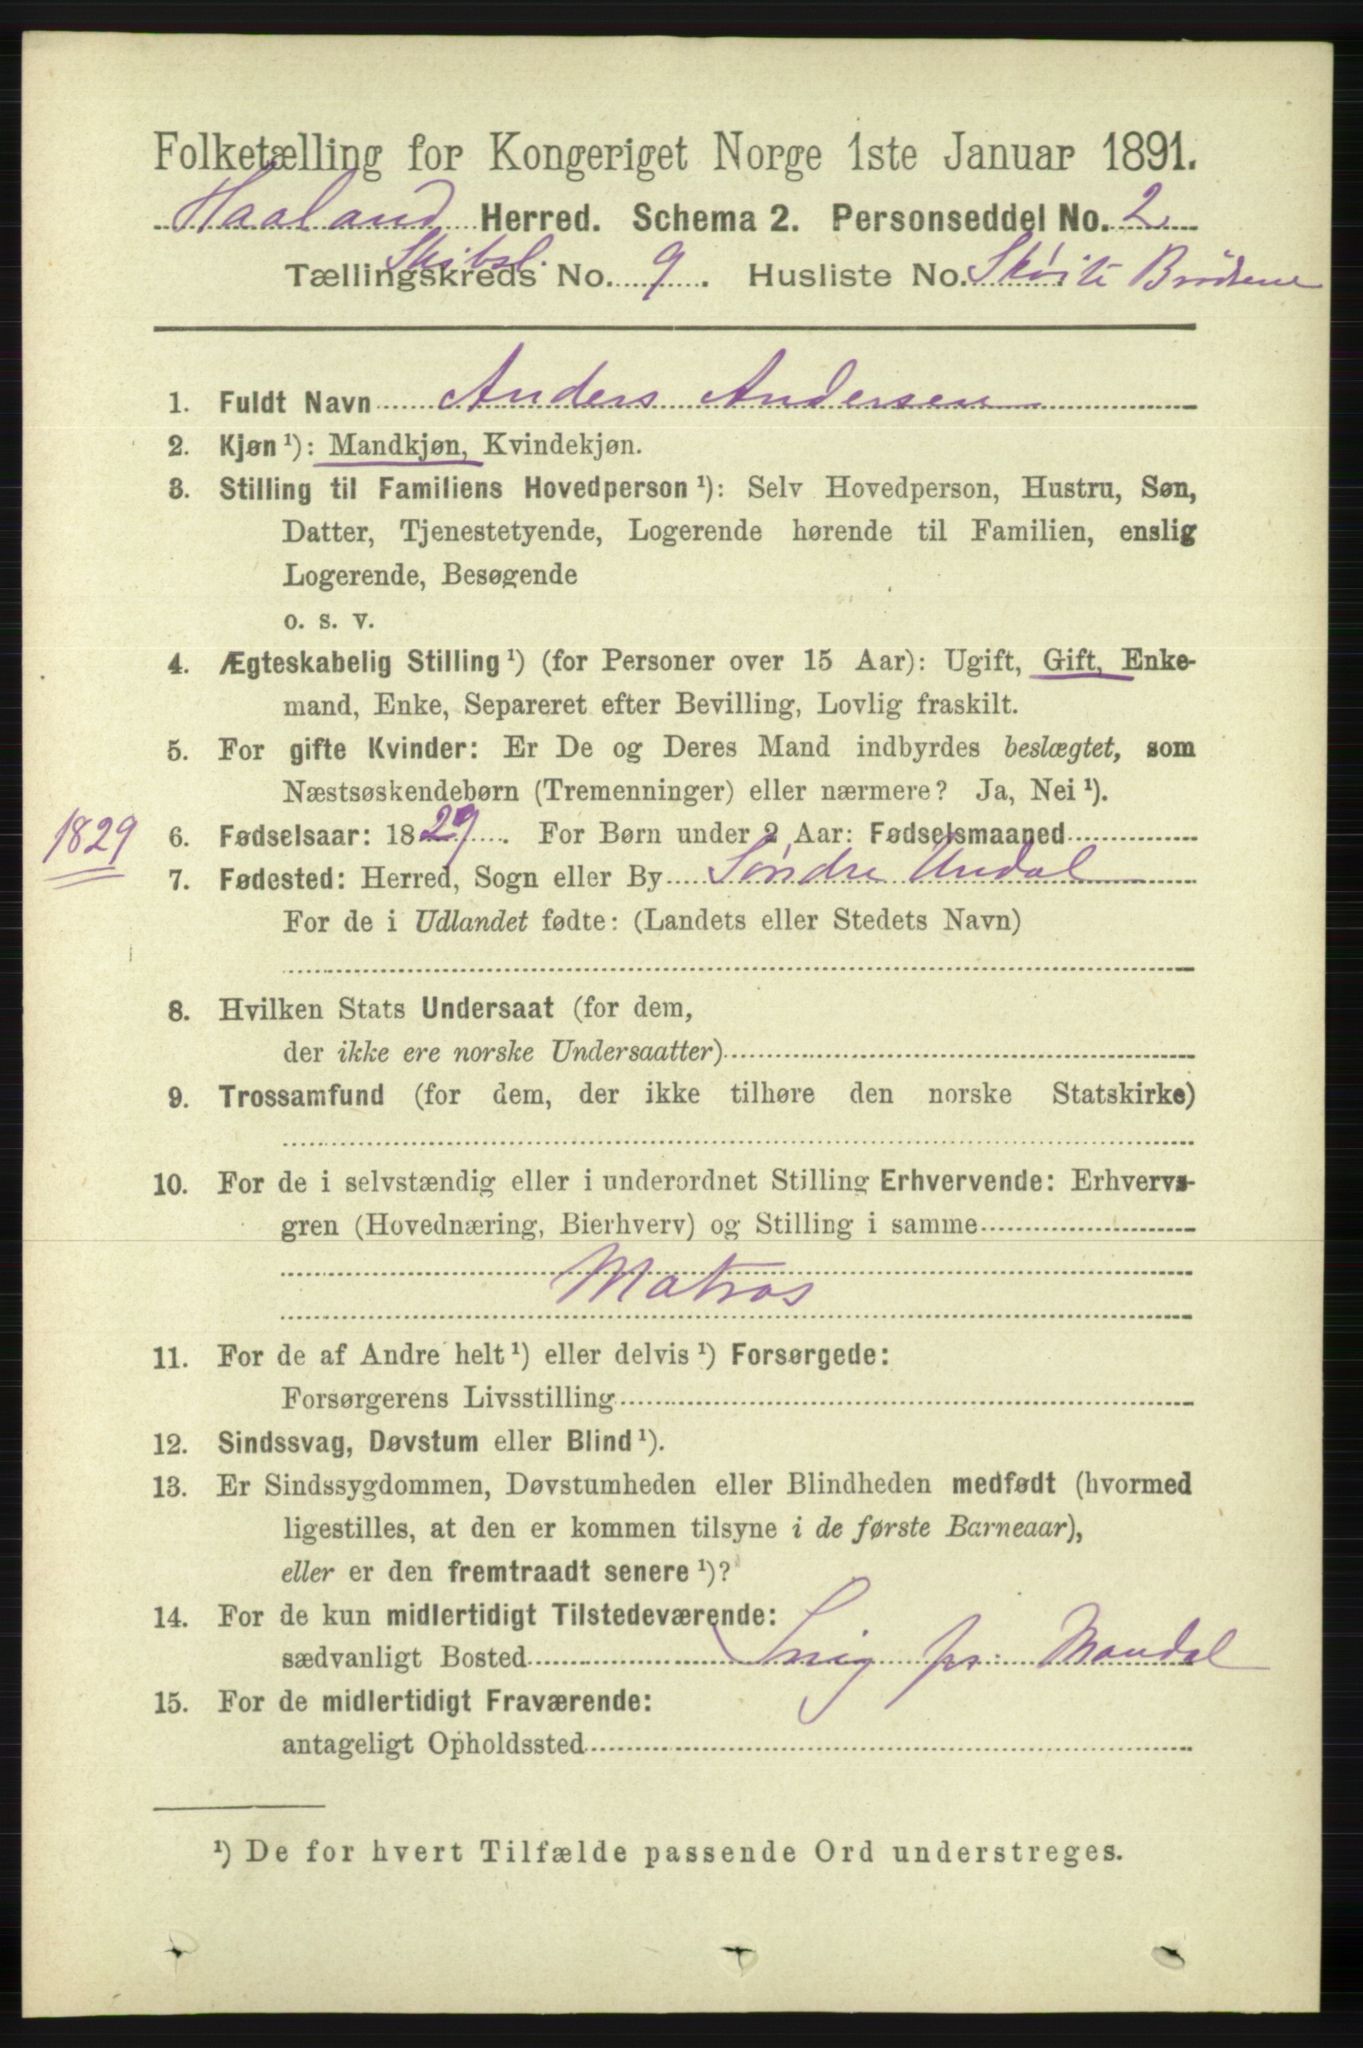 Folketælling for Kongeriget Norge 1ste Januar 1891.
Haaland Herred. Schema 2. Personseddel No. 2
Skibsl.
Tællingskreds No. 9. Husliste No. Skøite Brødrene
1. Fuldt Navn Anders Andersen
2. Kjøn ¹): Mandkjøn, Kvindekjøn.
3. Stilling til Familiens Hovedperson ¹): Selv Hovedperson, Hustru, Søn,
Datter, Tjenestetyende, Logerende hørende til Familien, enslig
Logerende, Besøgende
o. s. v.
4. Ægteskabelig Stilling ¹) (for Personer over 15 Aar): Ugift, Gift, Enke-
mand, Enke, Separeret efter Bevilling, Lovlig fraskilt.
5. For gifte Kvinder: Er De og Deres Mand indbyrdes beslægtet, som
Næstsøskendebørn (Tremenninger) eller nærmere? Ja, Nei ¹).
1829
6. Fødselsaar: 1829. For Børn under 2 Aar: Fødselsmaaned
7. Fødested: Herred, Sogn eller By Søndre Undal
For de i Udlandet fødte: (Landets eller Stedets Navn)
8. Hvilken Stats Undersaat (for dem,
der ikke ere norske Undersaatter)
9. Trossamfund (for dem, der ikke tilhøre den norske Statskirke)
10. For de i selvstændig eller i underordnet Stilling Erhvervende: Erhvervs-
gren (Hovednæring, Bierhverv) og Stilling i samme
Matros
11. For de af Andre helt ¹) eller delvis ¹) Forsørgede:
Forsørgerens Livsstilling
12. Sindssvag, Døvstum eller Blind ¹).
13. Er Sindssygdommen, Døvstumheden eller Blindheden medfødt (hvormed
ligestilles, at den er kommen tilsyne i de første Barneaar),
eller er den fremtraadt senere ¹)?
14. For de kun midlertidigt Tilstedeværende:
sædvanligt Bosted Snig pr. Mandal
15. For de midlertidigt Fraværende:
antageligt Opholdssted
¹) De for hvert Tilfælde passende Ord understreges.